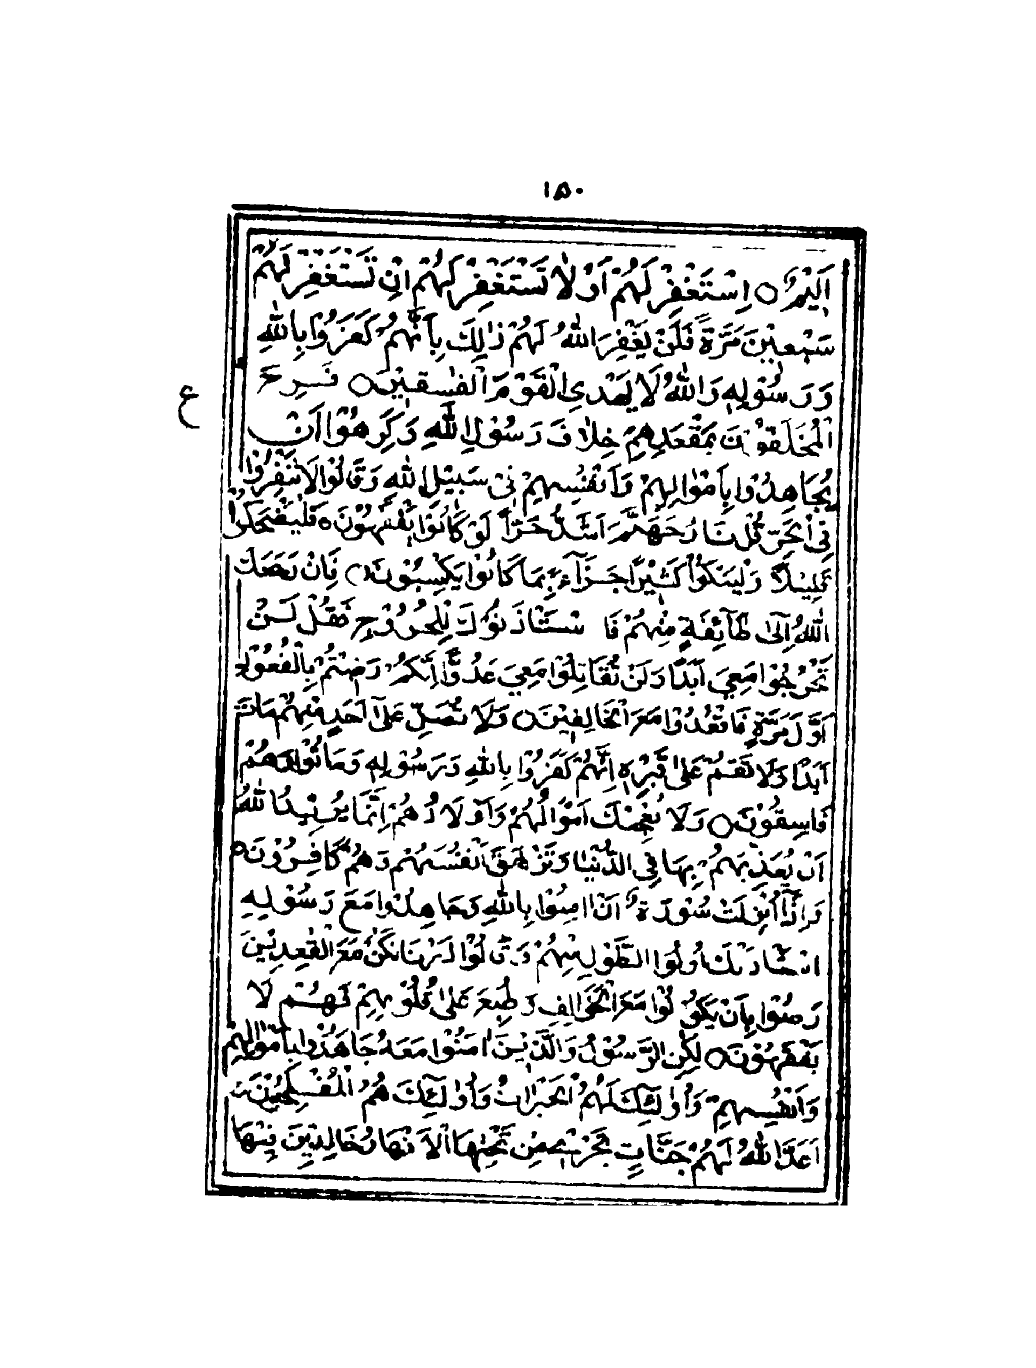 ١٥٠
اَلِيْمٌ ۝ اِسْتَغْفِرْ لَهُمْ اَوْ لَا تَسْتَغْفِرْ لَهُمْ اِنْ تَسْتَغْفِرْ لَهُمْ
سَبْعِيْنَ مَرَّةً فَلَنْ يَغْفِرَ اللّٰهُ لَهُمْ ذٰلِكَ بِاَنَّهُمْ كَفَرُوْا بِاللّٰهِ
وَرَسُوْلِهٖ وَاللّٰهُ لَا يَهْدِى الْقَوْمَ الْفٰسِقِيْنَ ۝ فَرِحَ
ع
الْمُخَلَّفُوْنَ بِمَقْعَدِهِمْ خِلَافَ رَسُوْلِ اللّٰهِ وَكَرِهُوْا اَنْ
يُجَاهِدُوْا بِاَمْوَالِهِمْ وَاَنْفُسِهِمْ فِىْ سَبِيْلِ اللّٰهِ وَقَالُوْا لَا تَنْفِرُوْا
فِى الْحَرِّ قُلْ نَارُ جَهَنَّمَ اَشَدُّ حَرًّا لَوْ كَانُوْا يَفْقَهُوْنَ ۝ فَلْيَضْحَكُوْا
قَلِيْلًا وَلْيَبْكُوْا كَثِيْرًا جَزَآءً بِمَا كَانُوْا يَكْسِبُوْنَ ۝ فَاِنْ رَجَعَكَ
اللّٰهُ اِلٰى طَآئِفَةٍ مِنْهُمْ فَاسْتَأْذَنُوْكَ لِلْخُرُوْجِ فَقُلْ لَنْ
تَخْرُجُوْا مَعِيَ اَبَدًا وَلَنْ تُقَاتِلُوْا مَعِيَ عَدُوًّا اِنَّكُمْ رَضِيْتُمْ بِالْقُعُوْدِ
اَوَّلَ مَرَّةٍ فَاقْعُدُوْا مَعَ الْخَالِفِيْنَ ۝ وَلَا تُصَلِّ عَلٰى اَحَدٍ مِنْهُمْ مَاتَ
اَبَدًا وَلَا تَقُمْ عَلٰى قَبْرِهٖ اِنَّهُمْ كَفَرُوْا بِاللّٰهِ وَرَسُوْلِهٖ وَمَاتُوْا وَهُمْ
فَاسِقُوْنَ ۝ وَلَا تُعْجِبْكَ اَمْوَالُهُمْ وَاَوْلَادُهُمْ اِنَّمَا يُرِيْدُ اللّٰهُ
اَنْ يُعَذِّبَهُمْ بِهَا فِى الدُّنْيَا وَتَزْهَقَ اَنْفُسُهُمْ وَهُمْ كَافِرُوْنَ ۝
وَاِذَآ اُنْزِلَتْ سُوْرَةٌ اَنْ اٰمِنُوْا بِاللّٰهِ وَجَاهِدُوْا مَعَ رَسُوْلِهِ
اسْتَأْذَنَكَ اُولُوا الطَّوْلِ مِنْهُمْ وَقَالُوْا ذَرْنَا نَكُنْ مَعَ الْقٰعِدِيْنَ
رَضُوْا بِاَنْ يَكُوْنُوْا مَعَ الْخَوَالِفِ وَطُبِعَ عَلٰى قُلُوْبِهِمْ فَهُمْ لَا
يَفْقَهُوْنَ ۝ لٰكِنِ الرَّسُوْلُ وَالَّذِيْنَ اٰمَنُوْا مَعَهٗ جَاهَدُوْا بِاَمْوَالِهِمْ
وَاَنْفُسِهِمْ وَاُولٰٓئِكَ لَهُمُ الْخَيْرَاتُ وَاُولٰٓئِكَ هُمُ الْمُفْلِحُوْنَ
اَعَدَّ اللّٰهُ لَهُمْ جَنَّاتٍ تَجْرِىْ مِنْ تَحْتِهَا الْاَنْهَارُ خَالِدِيْنَ فِيْهَا